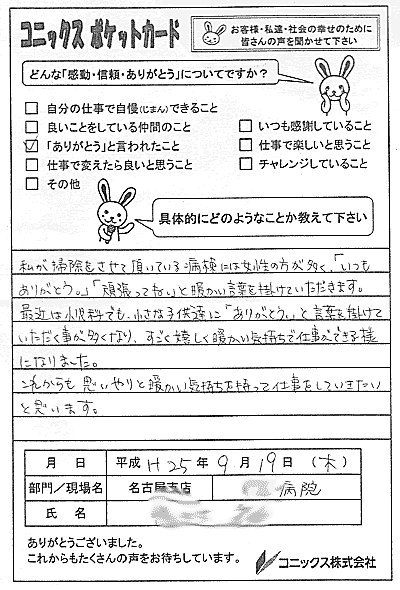 コニックス ポケットカード
お客様・私達・社会の幸せのために
皆さんの声を聞かせて下さい
どんな「感動・信頼・ありがとう」についてですか？
□ 自分の仕事で自慢(じまん)できること
□ 良いことをしている仲間のこと
□ いつも感謝していること
☑ 「ありがとう」と言われたこと
□ 仕事で楽しいと思うこと
□ 仕事で変えたら良いと思うこと
□ チャレンジしていること
□ その他
具体的にどのようなことか教えて下さい
私が掃除をさせて頂いている病棟には女性の方が多く、「いつも
ありがとう。」「頑張ってね」と暖かい言葉を掛けていただきます。
最近は小児科でも、小さな子供達に「ありがとう。」と言葉を掛けて
いただく事が多くなり、すごく嬉しく暖かい気持ちで仕事ができる様
になりました。
これからも思いやりと暖かい気持ちを持って仕事をしていきたい
と思います。
月 日 平成 H25 年 9 月 19 日 (木)
部門／現場名 名古屋支店 病院
氏 名
ありがとうございました。
これからもたくさんの声をお待ちしています。
コニックス株式会社